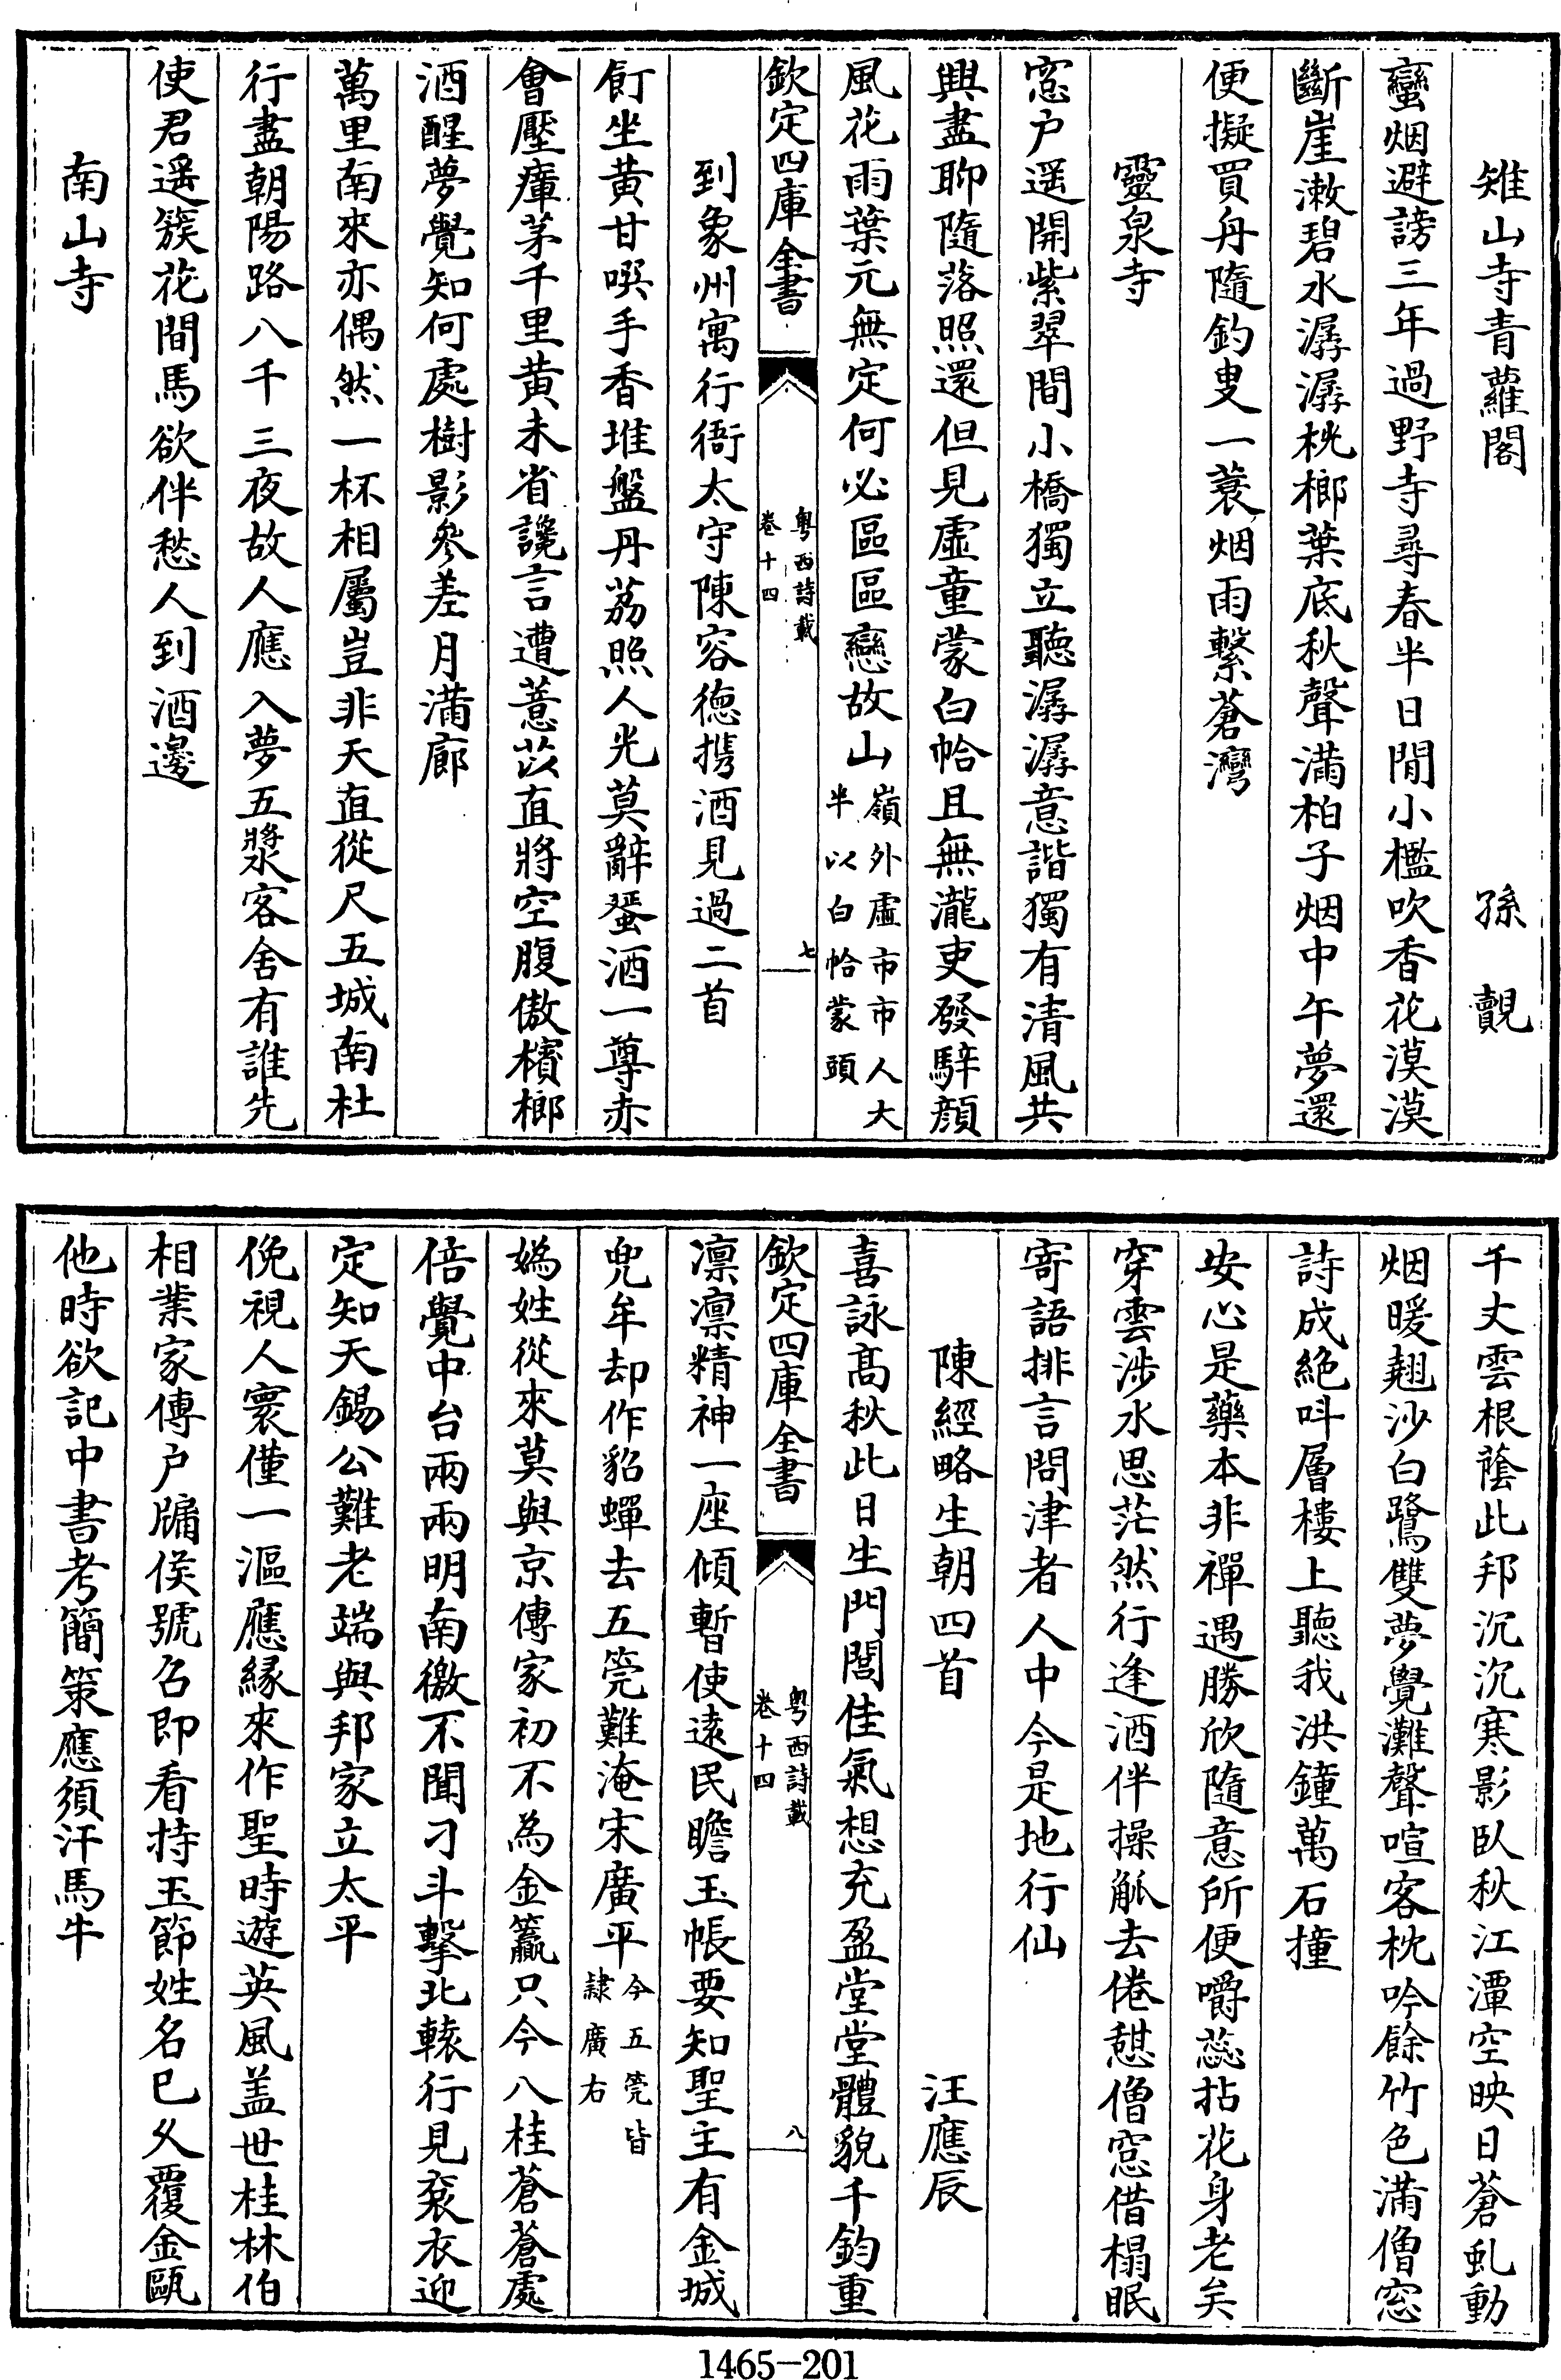 雉山寺青蘿閣　孫覿
蠻烟避謗三年過野寺尋春半日閒小檻吹香花漠漠
斷崖漱碧水潺潺桄榔葉底秋聲滿柏子烟中午夢還
便擬買舟隨釣叟一蓑烟雨繫蒼灣
靈泉寺
窓户遥開紫翠間小橋獨立聽潺潺意諧獨有清風共
興盡聊隨落照還但見虛童蒙白帢且無瀧吏發騂顔
風花雨葉元無定何必區區戀故山嶺外虛市市人大半以白帢蒙頭
欽定四庫全書
粤西詩載
卷十四
七
到象州寓行衙太守陳容德携酒見過二首
飣坐黄甘噀手香堆盤丹荔照人光莫辭蜑酒一尊赤
會壓㾏茅千里黄未省讒言遭薏苡直將空腹傲檳榔
酒醒夢覺知何處樹影參差月滿廊
萬里南來亦偶然一杯相屬豈非天直從尺五城南杜
行盡朝陽路八千三夜故人應入夢五漿客舍有誰先
使君遥簇花間馬欲伴愁人到酒邊
南山寺
千丈雲根蔭此邦沉沉寒影臥秋江潭空映日蒼虬動
烟暖翹沙白鷺雙夢覺灘聲喧客枕吟餘竹色滿僧窓
詩成絶呌層樓上聽我洪鐘萬石撞
安心是藥本非禪遇勝欣隨意所便嚼蕊拈花身老矣
穿雲涉水思茫然行逢酒伴操觚去倦憇僧窓借榻眠
寄語排言問津者人中今是地行仙
陳經略生朝四首　汪應辰
喜詠髙秋此日生門閭佳氣想充盈堂堂體貌千鈞重
欽定四庫全書
粤西詩載
卷十四
八
凛凛精神一座傾暫使逺民瞻玉帳要知聖主有金城
兜牟却作貂蟬去五筦難淹宋廣平今五筦皆隷廣右
媯姓從來莫與京傳家初不為金籯只今八桂蒼蒼處
倍覺中台兩兩明南徼不聞刁斗擊北轅行見衮衣迎
定知天錫公難老端與邦家立太平
俛視人寰僅一漚應緣來作聖時遊英風盖世桂林伯
相業家傳户牖侯號召即看持玉節姓名已久覆金甌
他時欲記中書考簡策應須汗馬牛
1465-201